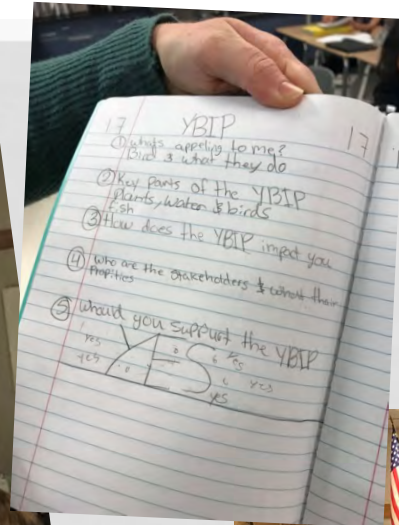 17 YBIP 17
① what's appeling to me?
Bird & what they do
② Key parts of the YBIP
Plants, Water & birds
fish
③ How does the YBIP impact you
④ who are the stakeholders & what their
Propities
⑤ Whould you support the YBIP
YES
yes yes
yes yes
yes